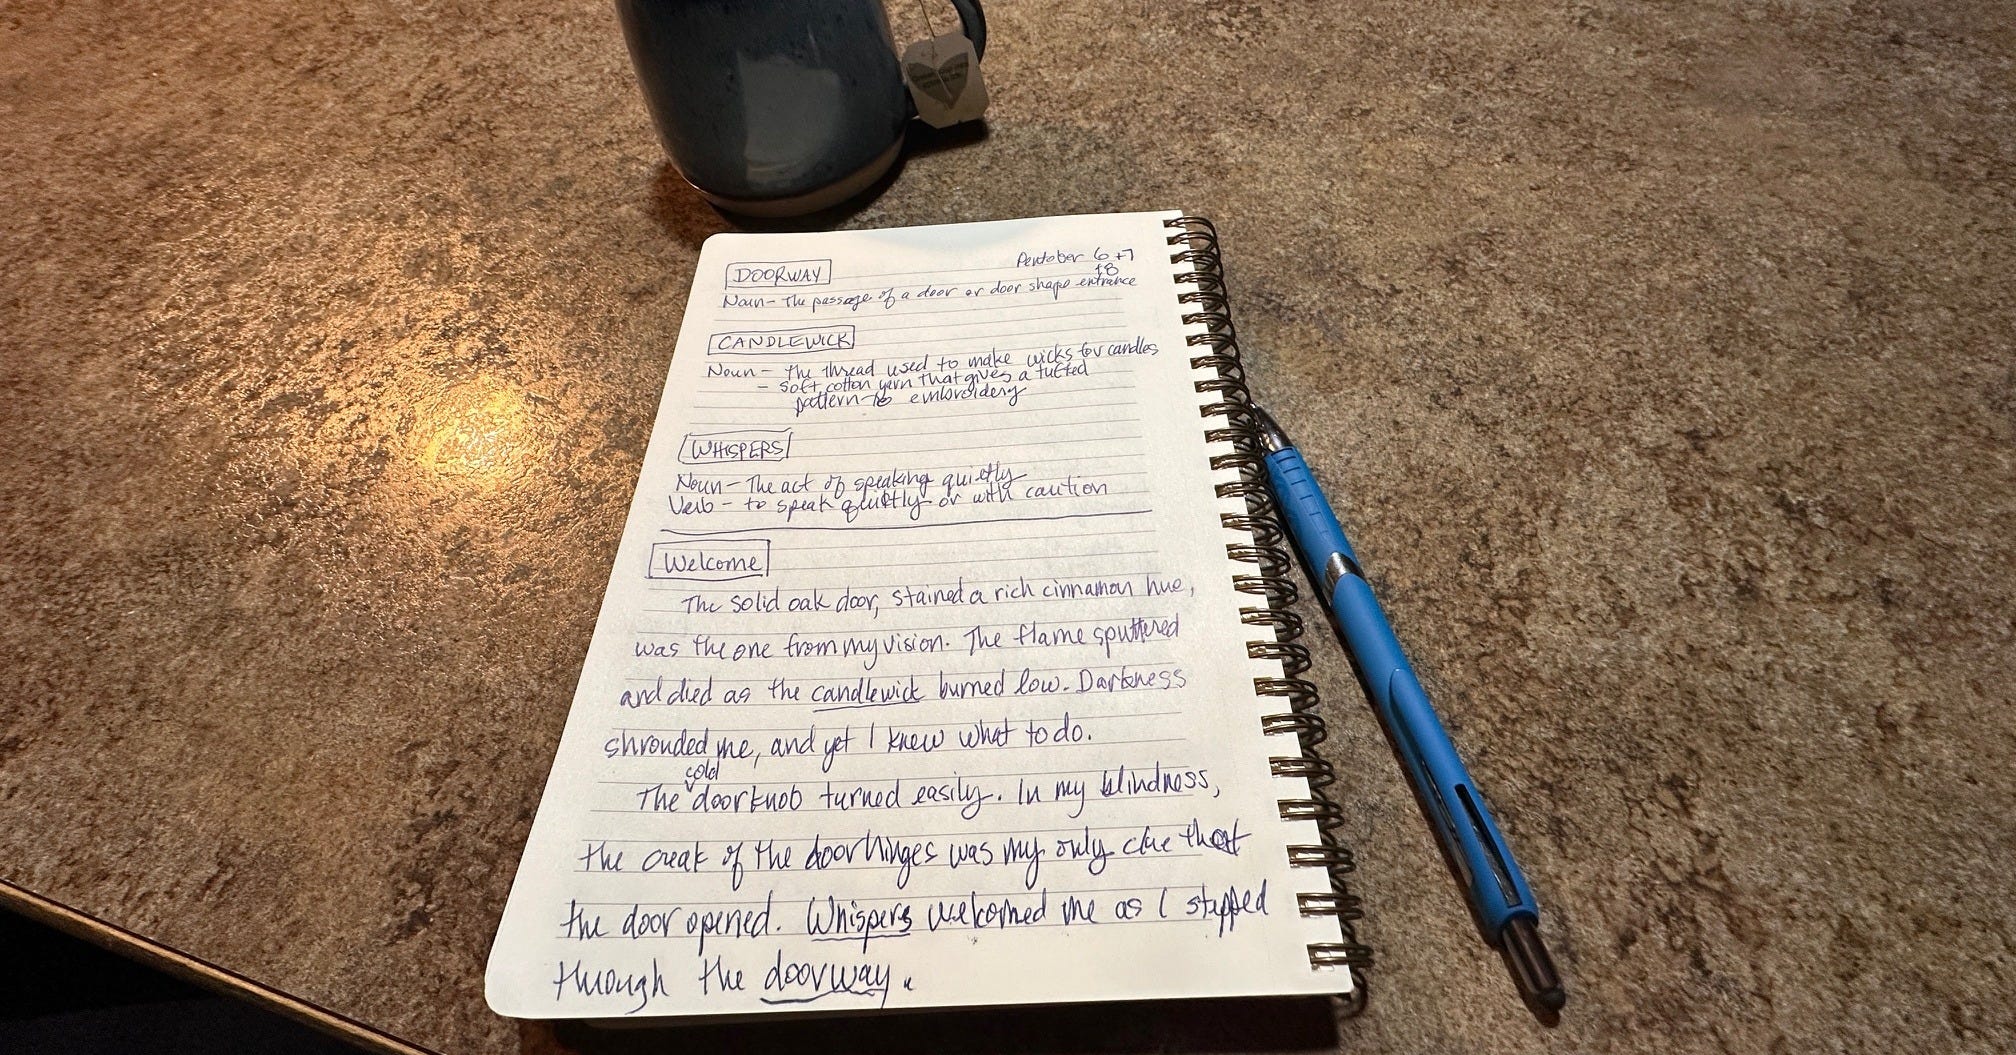 Pentober 6 +7
+8
DOORWAY
Noun - The passage of a door or door shape entrance
CANDLEWICK
Noun - the thread used to make wicks for candles
- soft cotton yarn that gives a tufted
pattern to embroidery
WHISPERS
Noun - The act of speaking quietly
Verb - to speak quietly or with caution
Welcome
The solid oak door, stained a rich cinnamon hue,
was the one from my vision. The flame sputtered
and died as the candlewick burned low. Darkness
shrouded me, and yet I knew what to do.
cold
The doorknob turned easily. In my blindness,
the creak of the doorhinges was my only clue that
the door opened. Whispers welcomed me as I stepped
through the doorway.